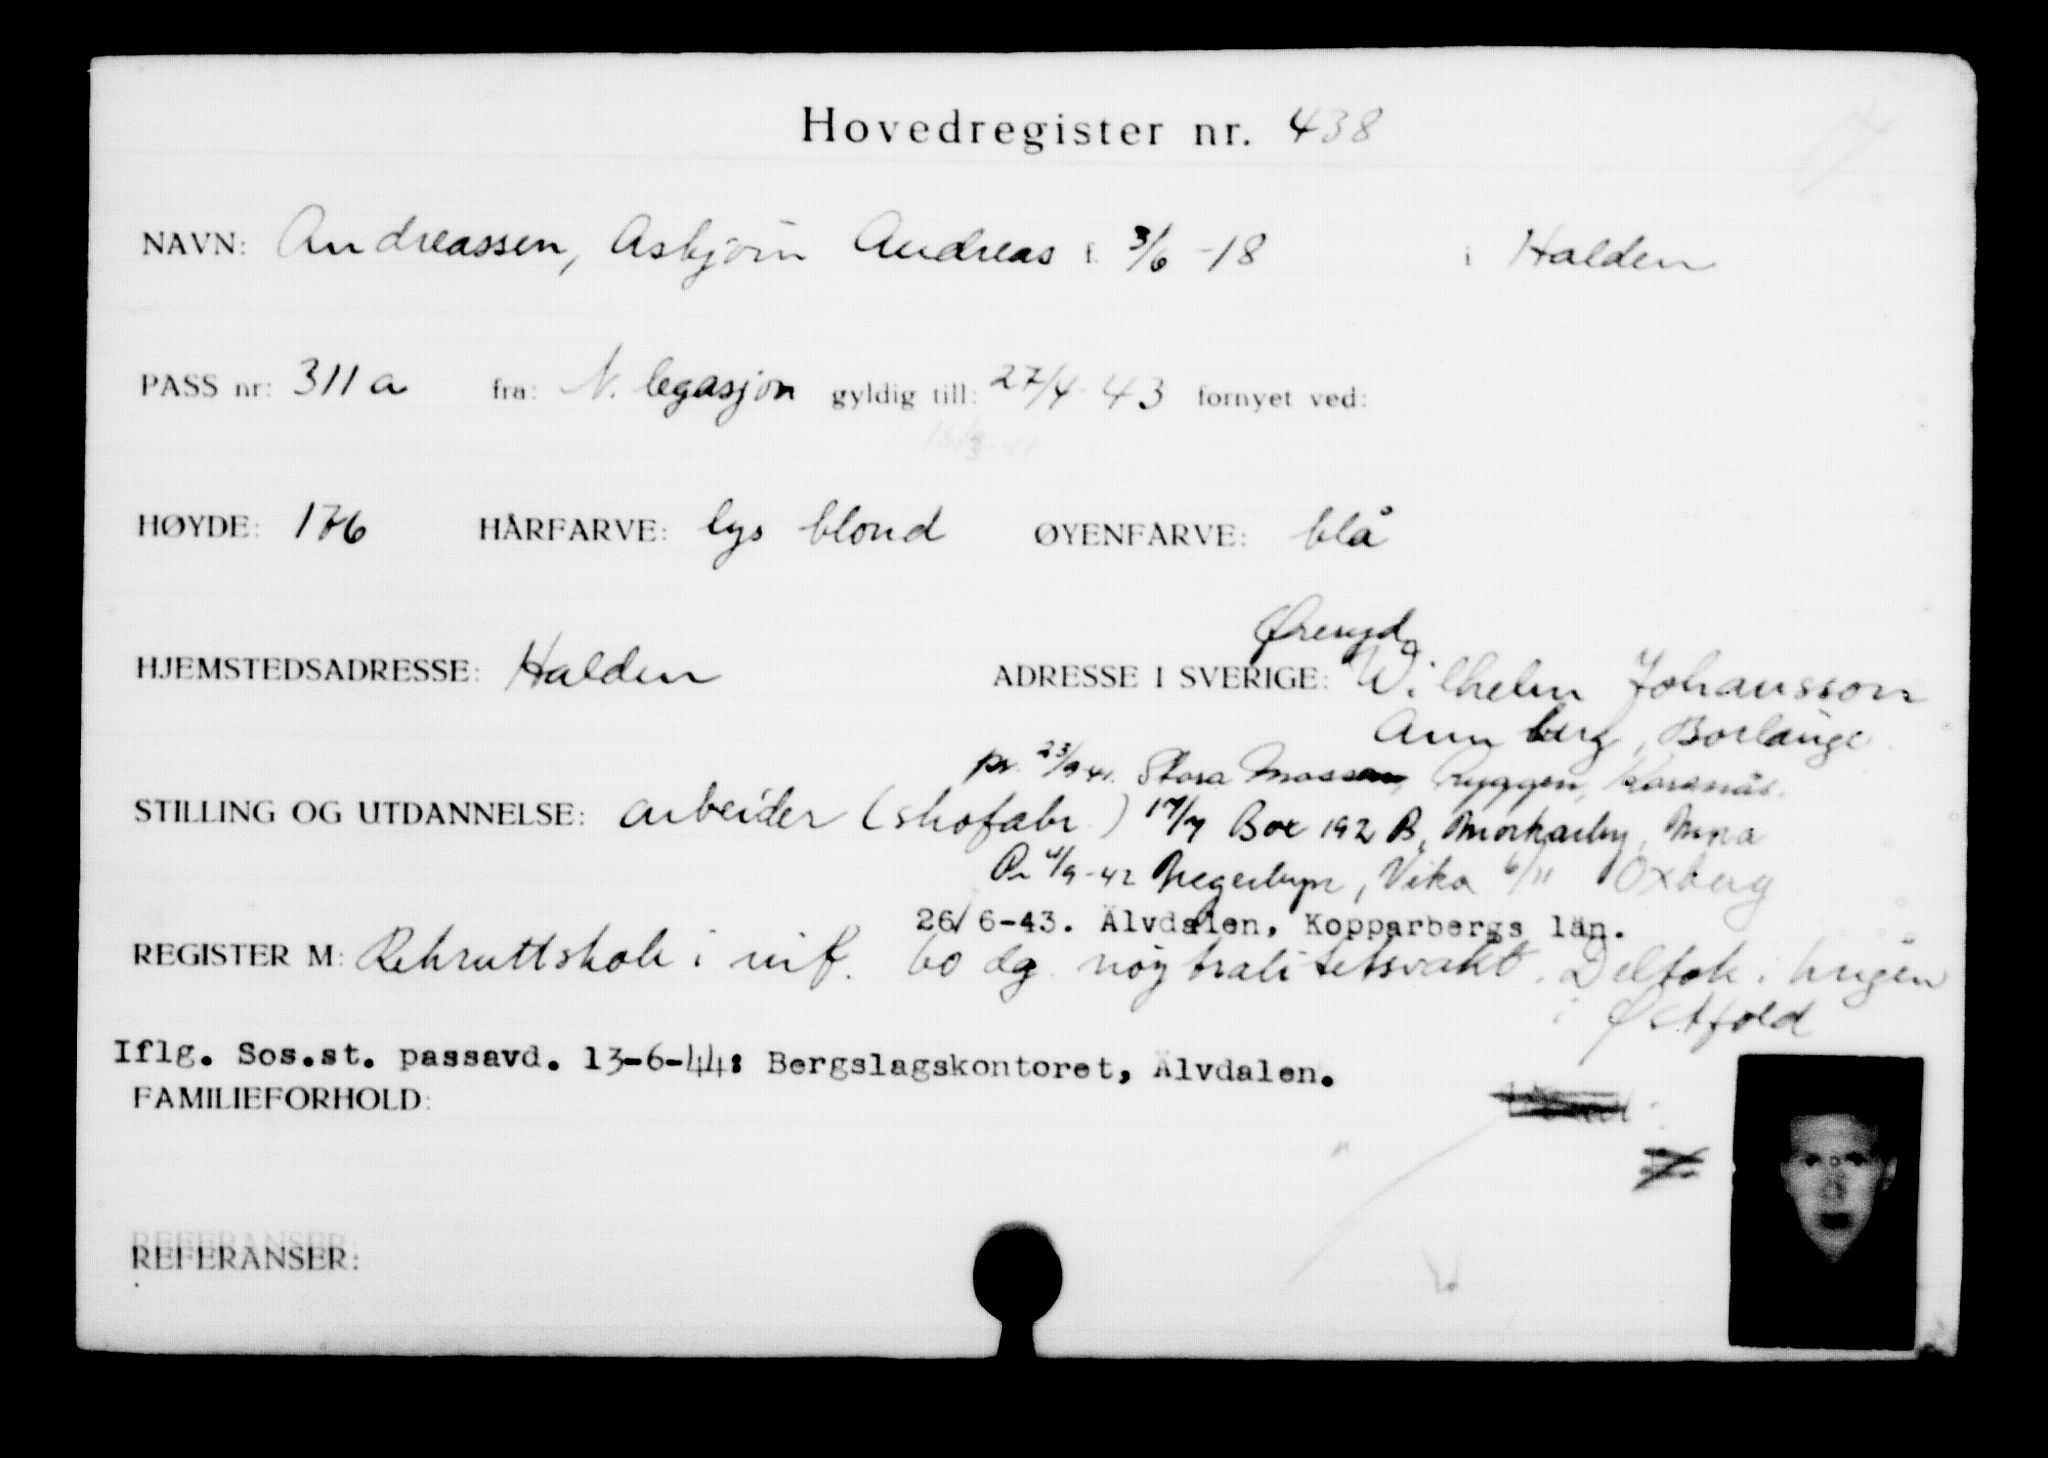 Hovedregister nr. 438
NAVN: Andreassen, Asbjørn Andreas f. 3/6 -18 i Halden
PASS nr: 311 a fra: N. legasjon gyldig till: 27/4-43 fornyet ved:
HØYDE: 176 HÅRFARVE: lys blond ØYENFARVE: blå
HJEMSTEDSADRESSE: Halden ADRESSE I SVERIGE: Wilhelm Johansson
Annberg, Borlänge
pr. 23/9 41. Stora Mossen, Ryggen, Korsnäs.
STILLING OG UTDANNELSE: arbeider (skofabr.) 17/7 Box 192 B, Morkarlby, Mora
Pr 4/9-42 , Vika 6/11 Oxberg
26/6-43. Älvdalen, Kopparbergs län.
REGISTER M: Rekruttskole i inf. 60 dg nøytralitetsvakt. Deltok i krigen
i Østfold
Iflg. Sos.st. passavd. 13-6-44: Bergslagskontoret, Älvdalen.
FAMILIEFORHOLD:
REFERANSER: